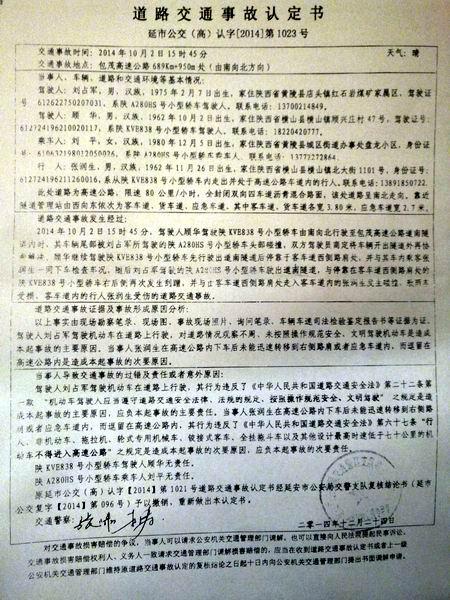 道路交通事故认定书
延市公交（高）认字[2014]第1023号
交通事故时间：2014年10月2日15时45分 天气：晴
交通事故地点：包茂高速公路689Km+950m处（由南向北方向）
当事人、车辆、道路和交通环境等基本情况：
驾驶人：刘占军，男，汉族，1975年2月7日出生，家住陕西省黄陵县店头镇红石岩煤矿家属区，驾驶证
号：612622750207031，系陕A280HS号小型轿车驾驶人，联系电话：13700214849，
驾驶人：顾华，男，汉族，1962年10月2日出生，家住陕西省横山县横山镇顺兴庄村47号，驾驶证号：
612724196210020117，系陕KVE838号小型轿车驾驶人，联系电话：18220420777，
乘车人：刘平，女，汉族，1980年12月5日出生，家住陕西省黄陵县城区街道办事处盘龙小区，身份证
行人：张润生，男，汉族，1962年11月26日出生，家住陕西省横山县横山镇北大街1101号，身份证号：
612724196211260016，系从陕KVE838号小型轿车内走出并处于高速公路客车道内的行人，联系电话：13891850722，
此处道路为高速公路，限速80公里/小时，全封闭双向四车道沥青混合路面，该处道路呈南北走向，靠近
隧道管理站由西向东依次为客车道、货车道、应急车道，其中客车道、货车道各宽3.80米，应急车道宽2.7米。
道路交通事故发生经过：
2014年10月2日15时45分，驾驶人顾华驾驶陕KVE838号小型轿车由南向北行驶至包茂高速公路道南隧
道内时，其车辆尾部被刘占军所驾驶的陕A280HS号小型轿车头部碰撞，双方驾驶员商定将车辆开出隧道外再协
商解决，顾华继续驾驶陕KVE838号小型轿车先行驶出道南隧道后停靠于客车道西侧路肩处，并与其车内乘客张
润生一同下车检查车况，随后刘占军驾驶的陕A280HS号小型轿车驶出道南隧道，与停靠在客车道西侧路肩处的
陕KVE838号小型轿车右后侧再次发生刮蹭，并与由客车道西侧路肩处走入客车道内的张润生发生碰撞，致两车
受损，客车道内的行人张润生受伤的道路交通事故。
道路交通事故证据及事故形成原因分析：
以上事实由现场勘察笔录、现场图、事故现场照片、询问笔录、车辆车速司法检验鉴定报告书等证据为证。
驾驶人刘占军驾驶机动车在道路上行驶，对道路情况观察不周、未按照操作规范安全、文明驾驶机动车是造成
本起事故的主要原因，当事人张润生在高速公路内下车后未能迅速转移到右侧路肩或者应急车道内，而逗留在
高速公路内是造成本起事故的次要原因。
当事人导致交通事故的过错及责任或者意外原因：
驾驶人刘占军驾驶机动车在道路上行驶，其行为违反了《中华人民共和国道路交通安全法》第二十二条第
一款“机动车驾驶人应当遵守道路交通安全法律、法规的规定，按照操作规范安全、文明驾驶”之规定是造
成本起事故的主要原因，应负本起事故的主要责任。当事人张润生在高速公路内下车后未能迅速转移到右侧路
肩或者应急车道内，而逗留在高速公路内，其行为违反了《中华人民共和国道路交通安全法》第六十七条“行
人、非机动车、拖拉机、轮式专用机械车、铰接式客车、全挂拖斗车以及其他设计最高时速低于七十公里的机动
车不得进入高速公路”之规定是造成本起事故的次要原因，应负本起事故的次要责任。
陕KVE838号小型轿车驾驶人顾华无责任。
陕A280HS号小型轿车乘车人刘平无责任。
原延市公交（高）认字【2014】第1021号道路交通事故认定书经延安市公安局交警支队复核结论书（延市
公交复字【2014】第096号）予以撤销，重新做出本认定书。
交通警察：
二零一四年十二月二十四日
对交通事故损害赔偿的争议，当事人可以请求公安机关交通管理部门调解，也可以直接向人民法院提起民事诉讼。
交通事故损害赔偿权利人、义务人一致请求公安机关交通管理部门调解损害赔偿的，应当在收到道路交通事故认定书或者上一级
公安机关交通管理部门维持原道路交通事故认定的复核结论之日起十日内向公安机关交通管理部门提出书面调解申请。